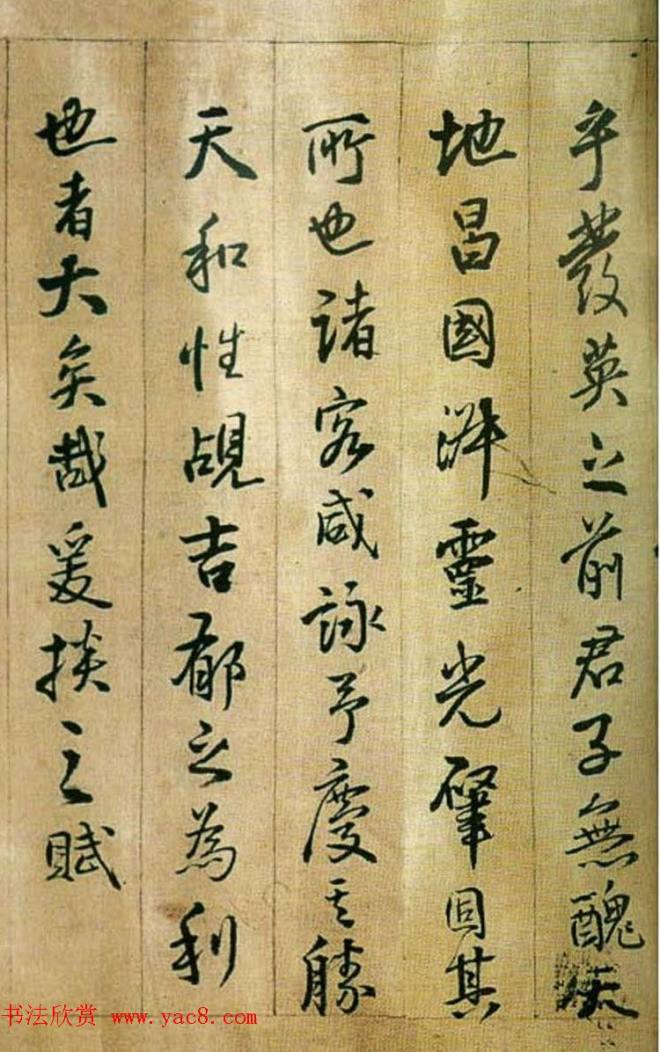 乎蕟英之前君子無醜天
地昌國洴靈光肇固其
所也諸客咸詠予慶之勝
天和性靚吉郁之為利
也者大矣哉爰掞之賦
书法欣赏 www.yac8.com